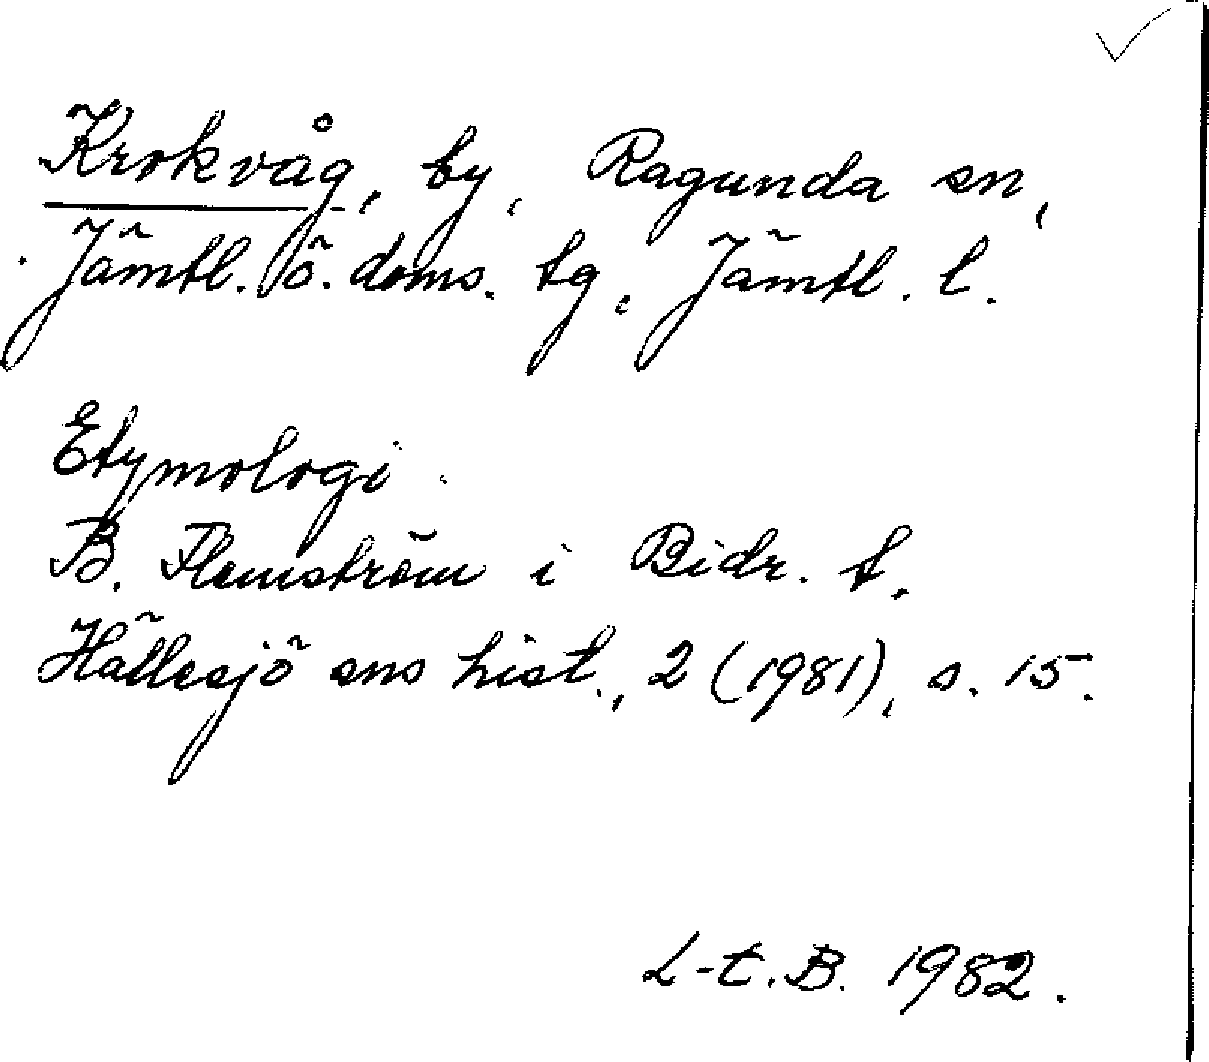 Krokvåg, by, Ragunda sn,
Jämtl. ö. doms. tg, Jämtl. l.
Etymologi.
B. Flemström i Bidr. t.
Hällesjö sns hist., 2 (1981), s. 15.
L-t. B. 1982.